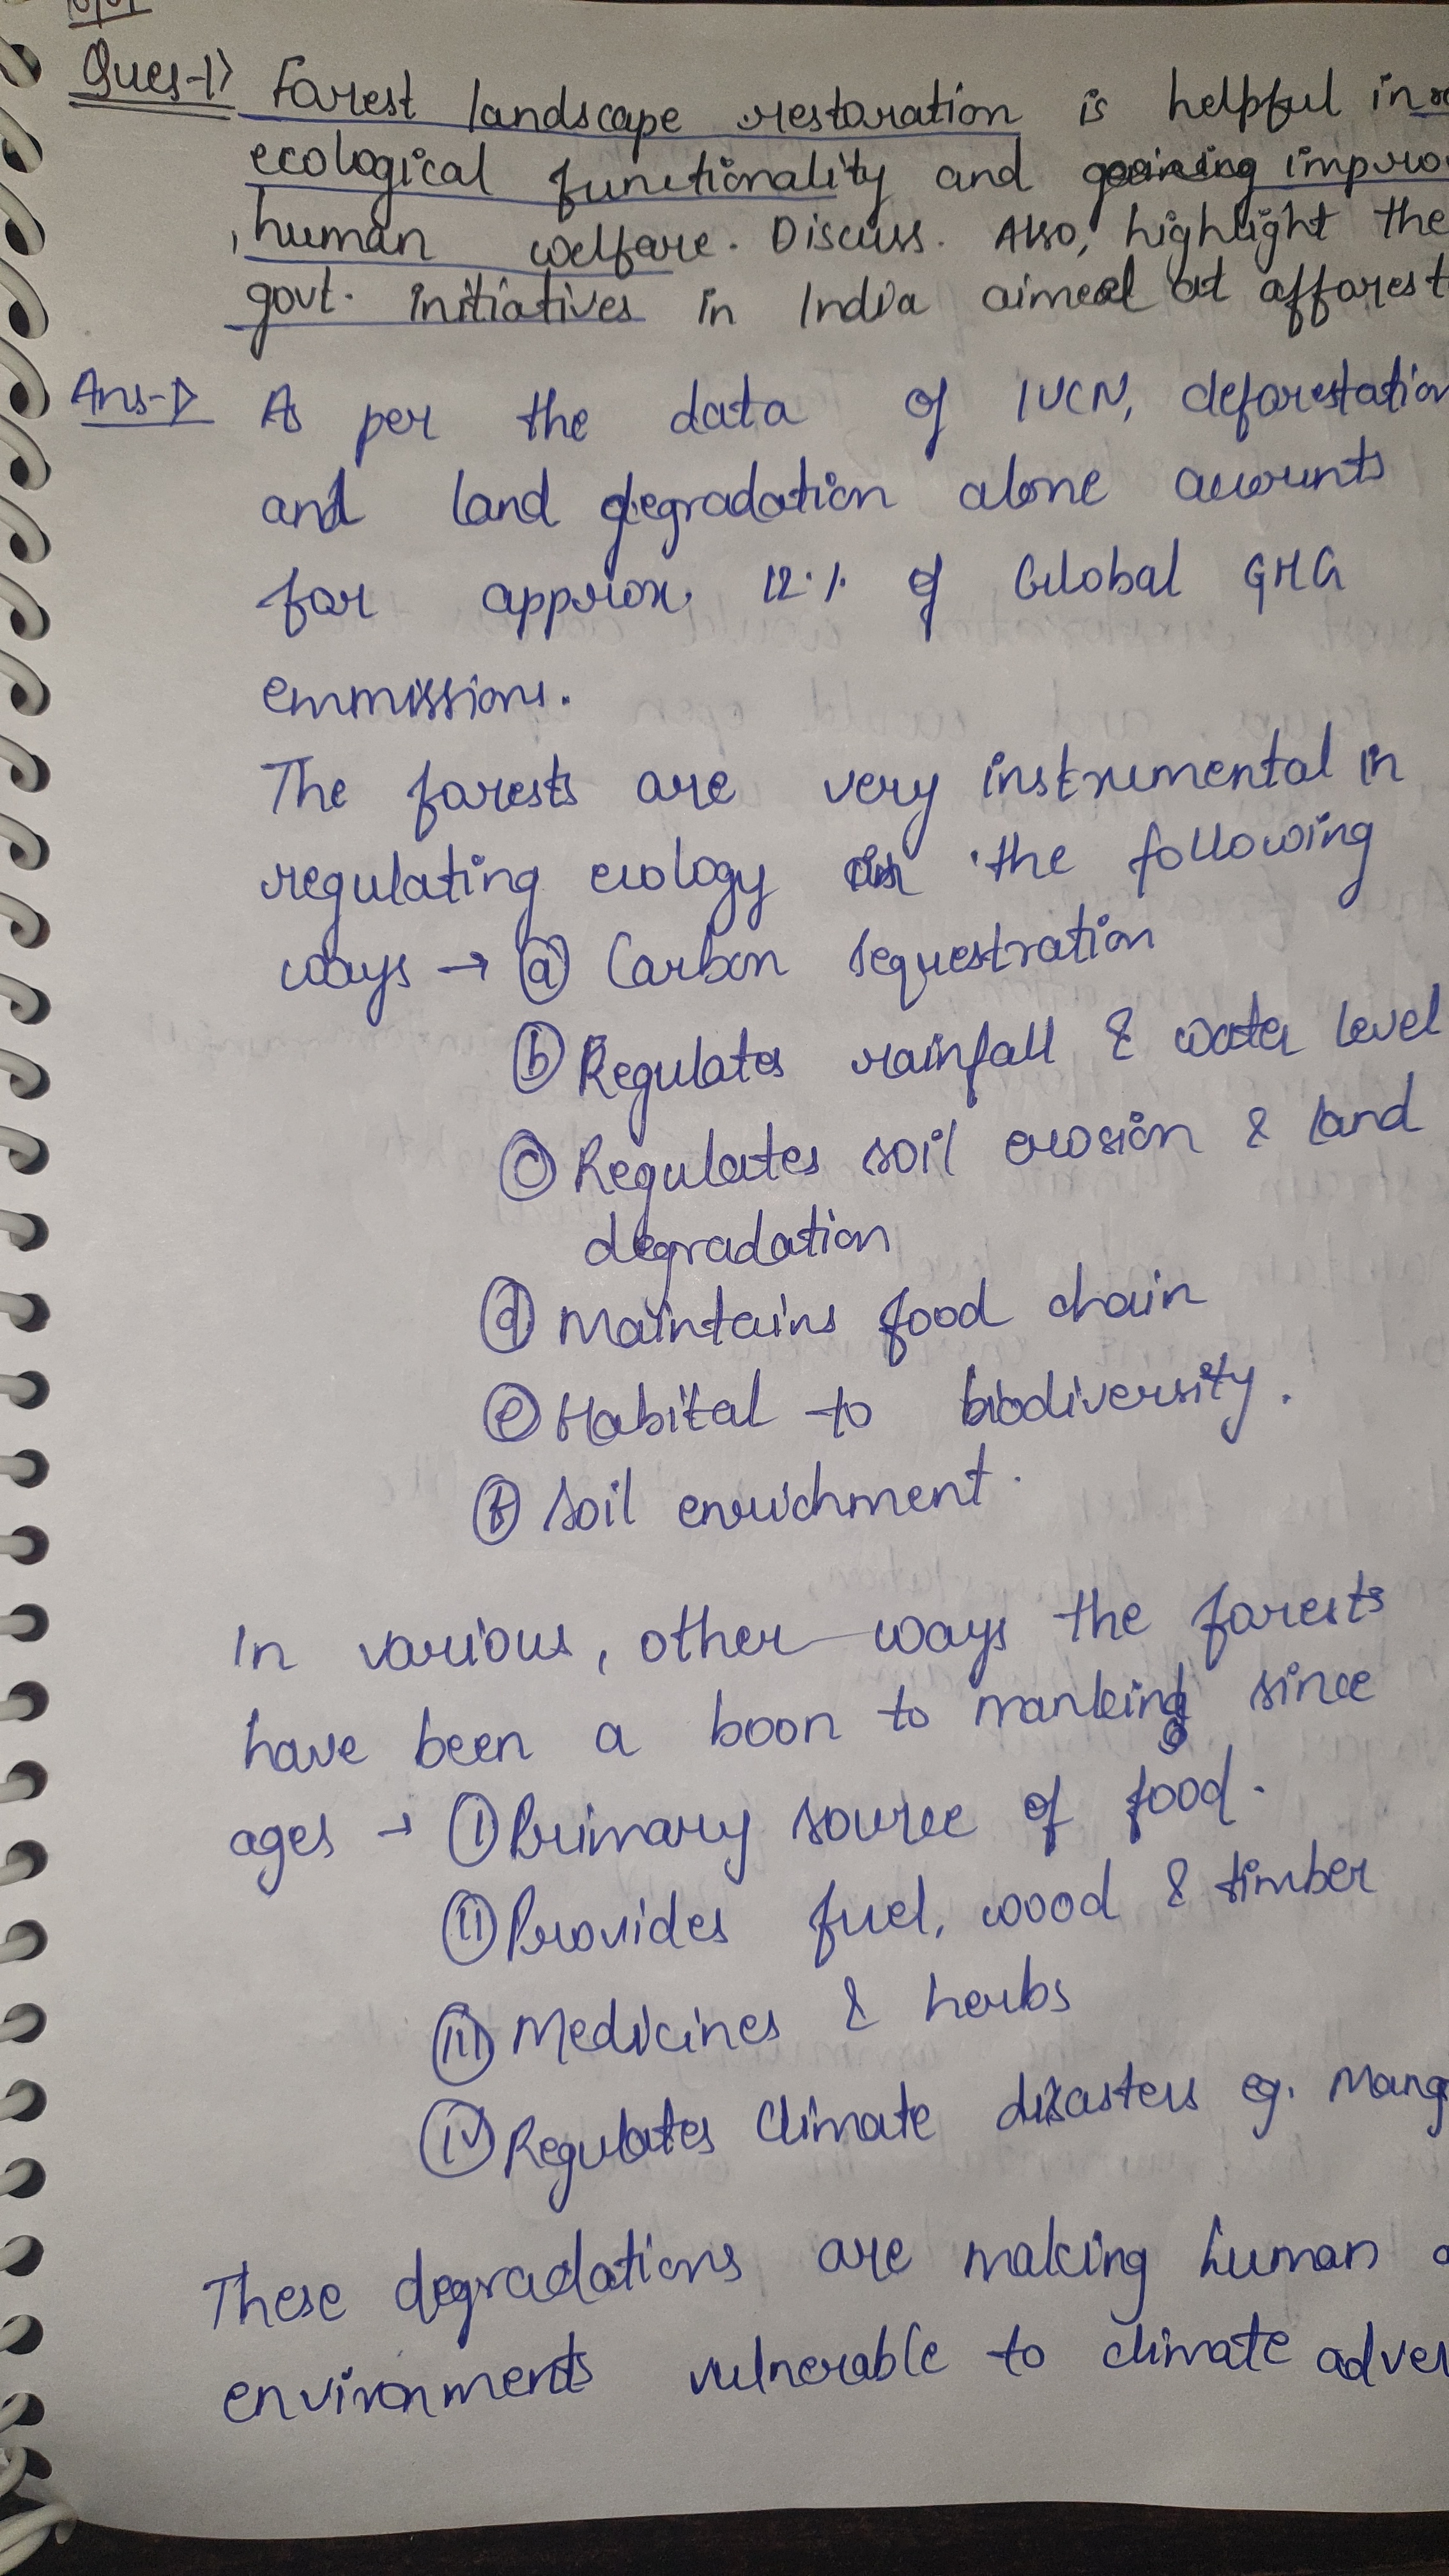 Ques-1) Forest landscape restoration is helpful in
ecological functionality and gaining
human welfare. Discuss. Also, highlight the
govt. initiatives in India aimed at
Ans-> As per the data of IUCN, deforestation
and land degradation alone accounts
for approx. 12% of Global GHG
emmissions.
The forests are very instrumental in
regulating ecology in the following
ways → (a) Carbon sequestration
(b) Regulates rainfall & water level
(c) Regulates soil erosion & land
degradation
(d) Maintains food chain
(e) Habital to biodiversity.
(f) Soil enrichment.
In various, other ways the forests
have been a boon to mankind since
ages → (i) Primary source of food.
(ii) Provides fuel, wood & timber
(iii) Medicines & herbs
(iv) Regulates Climate disasters eg.
These degradations are making human
environments vulnerable to climate